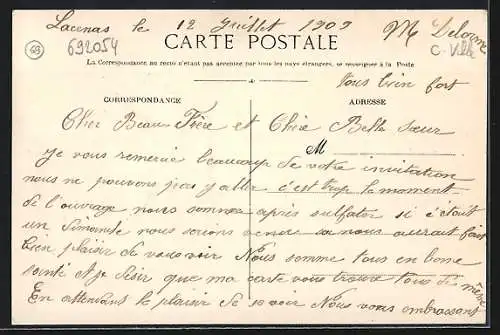 Lacenas le 12 Juillet 1909
M Delorme
692054
C. Ville
CARTE POSTALE
La Correspondance au recto n'étant pas acceptée par tous les pays étrangers, se renseigner à la Poste
Vous bien fort
CORRESPONDANCE
ADRESSE
Cher Beau Frère et Chère Belle sœur
M
Je vous remercie beaucoup de votre invitation
nous ne pouvons pas y aller c'est trop le moment
de l'ouvrage nous sommes après sulfater si c'était
un Dimanche nous serions venu nous aurait fait
bien plaisir de vous voir Nous somme tous en bone
santé et je désir que ma carte vous trouve tous de même
En attendant le plaisir de se voir Nous vous embrassons